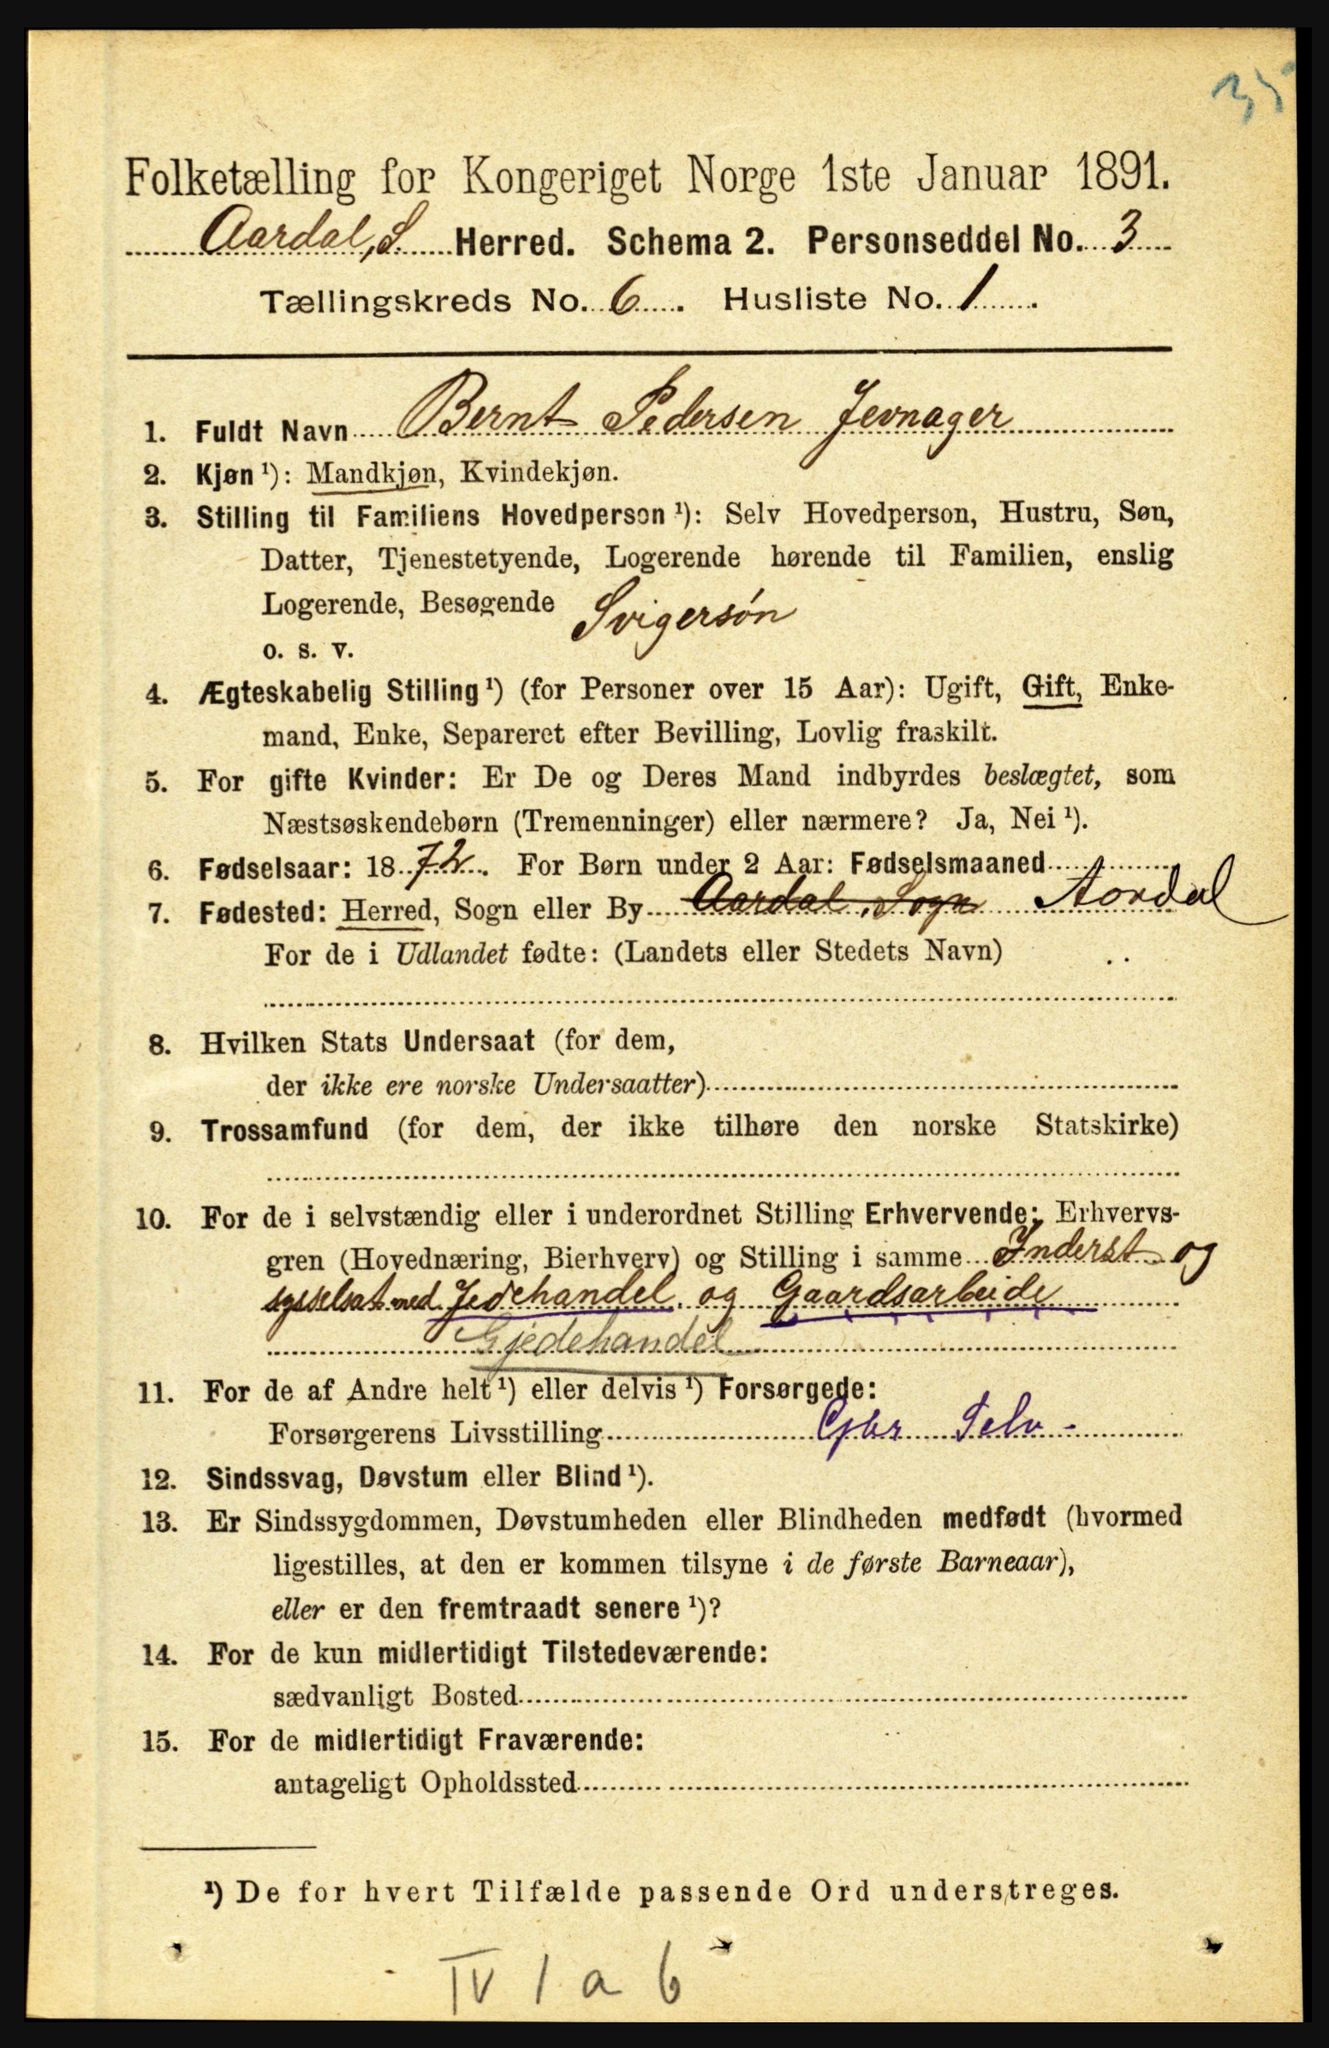 35
Folketælling for Kongeriget Norge 1ste Januar 1891.
Aardal, S Herred. Schema 2. Personseddel No. 3
Tællingskreds No. 6. Husliste No. 1.
1. Fuldt Navn Bernt Pedersen Jevnager
2. Kjøn ¹): Mandkjøn, Kvindekjøn.
3. Stilling til Familiens Hovedperson ¹): Selv Hovedperson, Hustru, Søn,
Datter, Tjenestetyende, Logerende hørende til Familien, enslig
Logerende, Besøgende Svigersøn
o. s. v.
4. Ægteskabelig Stilling ¹) (for Personer over 15 Aar): Ugift, Gift, Enke-
mand, Enke, Separeret efter Bevilling, Lovlig fraskilt.
5. For gifte Kvinder: Er De og Deres Mand indbyrdes beslægtet, som
Næstsøskendebørn (Tremenninger) eller nærmere? Ja, Nei ¹).
6. Fødselsaar: 1872. For Børn under 2 Aar: Fødselsmaaned
7. Fødested: Herred, Sogn eller By Aardal, Sogn Aordal
For de i Udlandet fødte: (Landets eller Stedets Navn)
8. Hvilken Stats Undersaat (for dem,
der ikke ere norske Undersaatter)
9. Trossamfund (for dem, der ikke tilhøre den norske Statskirke)
10. For de i selvstændig eller i underordnet Stilling Erhvervende: Erhvervs-
gren (Hovednæring, Bierhverv) og Stilling i samme Inderst og
sysselsat med Jedehandel og Gaardsarbeide
Gjedehandel
11. For de af Andre helt ¹) eller delvis ¹) Forsørgede:
Forsørgerens Livsstilling Gbr Selv -
12. Sindssvag, Døvstum eller Blind ¹).
13. Er Sindssygdommen, Døvstumheden eller Blindheden medfødt (hvormed
ligestilles, at den er kommen tilsyne i de første Barneaar),
eller er den fremtraadt senere ¹)?
14. For de kun midlertidigt Tilstedeværende:
sædvanligt Bosted
15. For de midlertidigt Fraværende:
antageligt Opholdssted
¹) De for hvert Tilfælde passende Ord understreges.
IV 1 a b